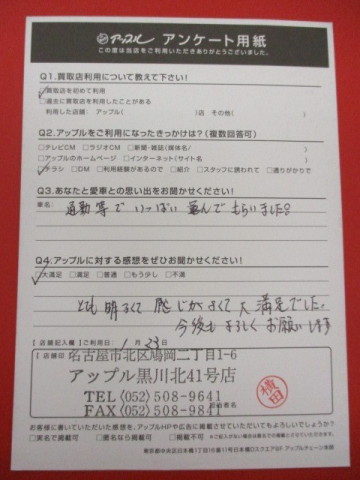 アップル アンケート用紙
この度は当店をご利用いただきありがとうございました。
Q1.買取店利用について教えて下さい!
□買取店を初めて利用
□過去に買取店を利用したことがある
利用した店舗: アップル( )店 その他( )
Q2.アップルをご利用になったきっかけは?(複数回答可)
□テレビCM □ラジオCM □新聞・雑誌(媒体名/ )
□アップルのホームページ □インターネット(サイト名 )
□チラシ □DM □利用経験があるので □紹介 □スタッフに誘われて □通りがかりで
Q3.あなたと愛車との思い出をお聞かせください!
車名:
通勤等でいっぱい運んでもらいました?
Q4.アップルに対する感想をぜひお聞かせください!
□大満足 □満足 □普通 □もう少し □不満
とても明るくて感じがよくて大満足でした。
今後もよろしくお願いします
【店舗記入欄】ご利用日: 1月23日
【店舗印】
名古屋市北区鳩岡二丁目1-6
アップル黒川北41号店
TEL〈052〉508-9641
FAX〈052〉508-9841
担当者名
横田
お客様に書いていただいた感想を、アップルHPや広告に掲載させていただいてもよろしいでしょうか?
□実名で掲載可 □匿名なら掲載可 □掲載不可
東京都中央区日本橋1丁目19番11号日本橋ロスクエア8F アップルチェーン本部